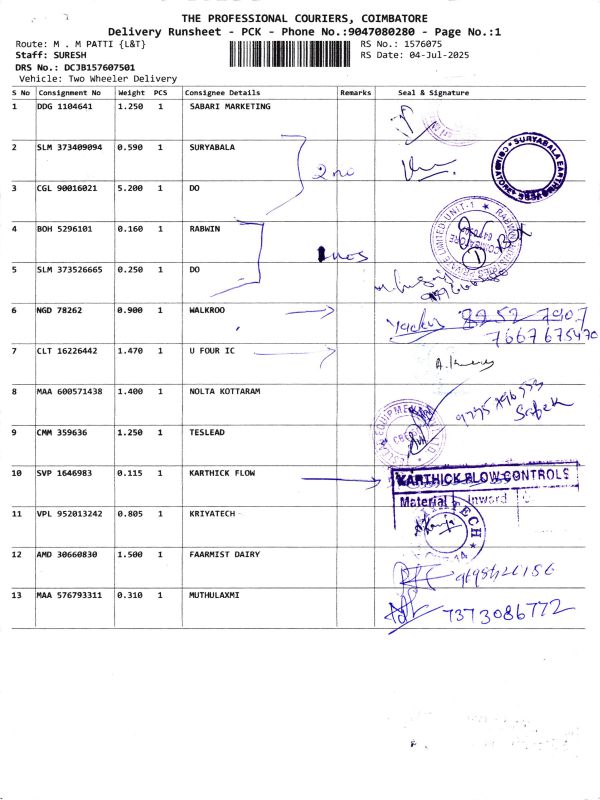 THE PROFESSIONAL COURIERS, COIMBATORE
Delivery Runsheet - PCK - Phone No.:9047080280 - Page No.:1
Route: M . M PATTI {L&T}
RS No.: 1576075
Staff: SURESH
RS Date: 04-Jul-2025
DRS No.: DCJB157607501
Vehicle: Two Wheeler Delivery
S No Consignment No Weight PCS Consignee Details Remarks Seal & Signature
1 DDG 1104641 1.250 1 SABARI MARKETING
2 SLM 373409094 0.590 1 SURYABALA
3 CGL 90016021 5.200 1 DO
4 BOH 5296101 0.160 1 RABWIN
5 SLM 373526665 0.250 1 DO
6 NGD 78262 0.900 1 WALKROO
7667675470
7 CLT 16226442 1.470 1 U FOUR IC
8 MAA 600571438 1.400 1 NOLTA KOTTARAM
9 CMM 359636 1.250 1 TESLEAD
10 SVP 1646983 0.115 1 KARTHICK FLOW
KARTHICK FLOW CONTROLS
Material Inward
11 VPL 952013242 0.805 1 KRIYATECH
12 AMD 30660830 1.500 1 FAARMIST DAIRY
13 MAA 576793311 0.310 1 MUTHULAXMI
7373086772